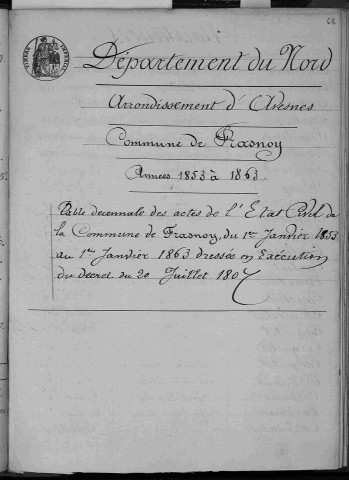 68
TIMBRE IMPERIAL
Département du Nord
Arrondissement d'Avesnes
Commune de Frasnoy
Années 1853 à 1863
Table decennale des actes de l'Etat Civil de
la Commune de Frasnoy, du 1er Janvier 1853
au 1er Janvier 1863 dressée en Exécution
du decret du 20 Juillet 1807